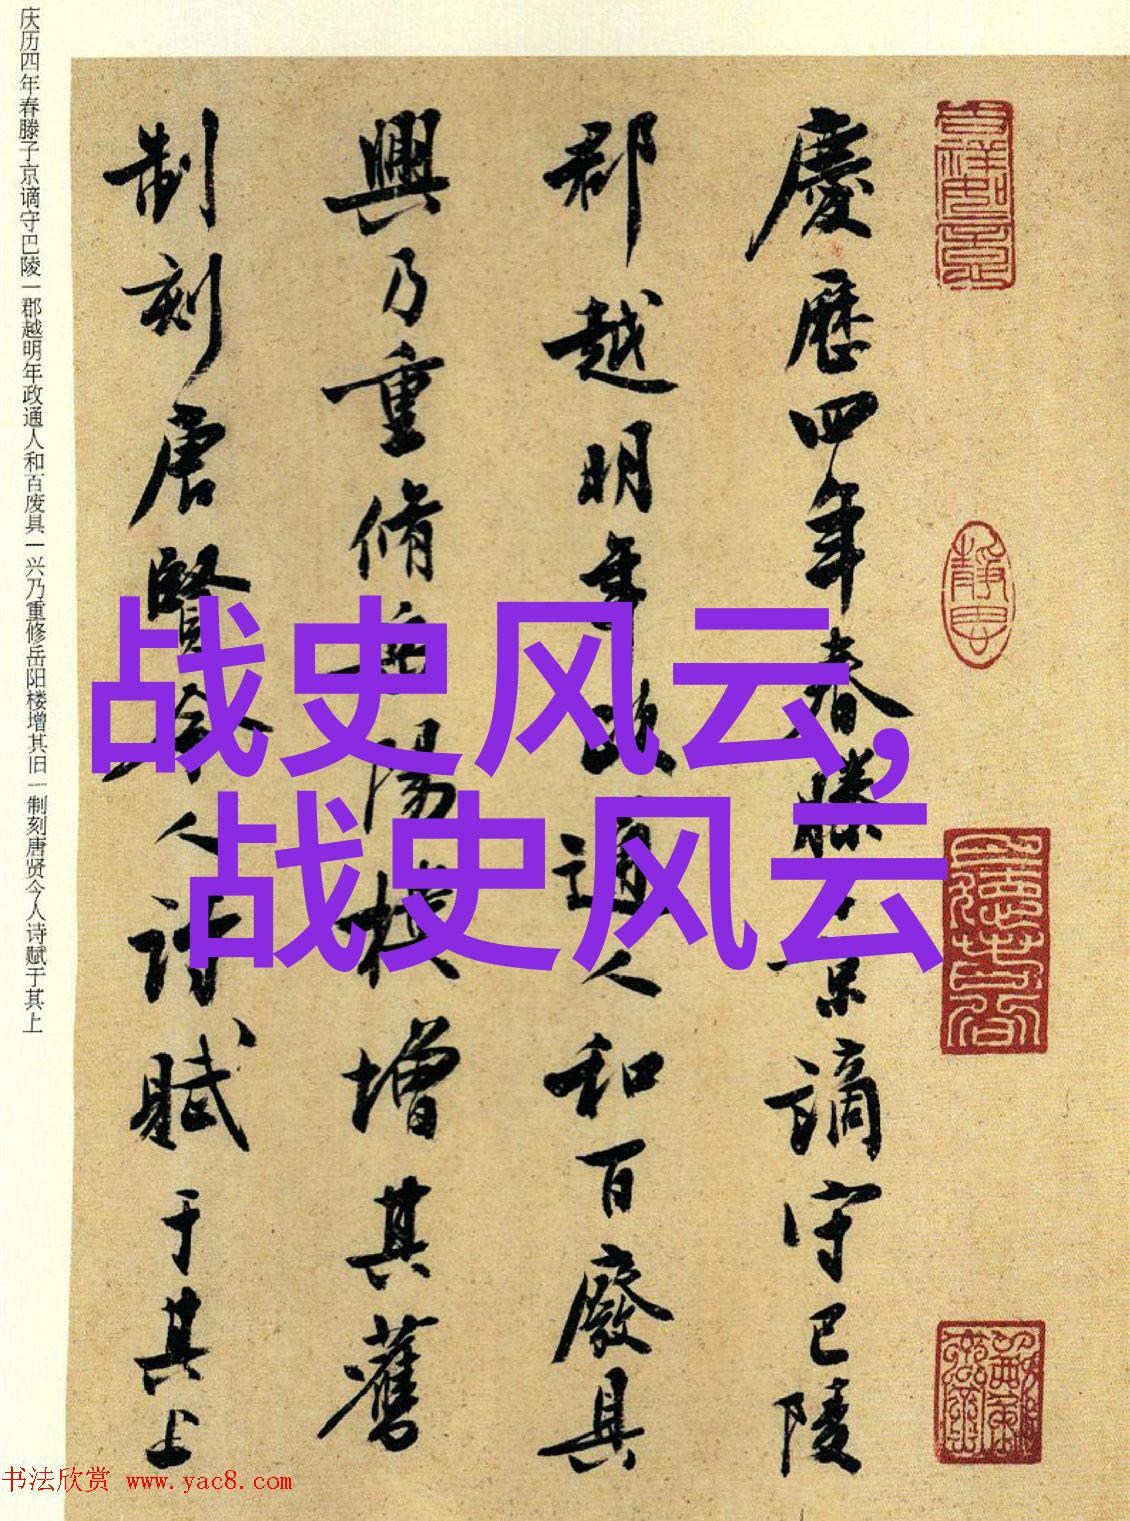 慶歷四年春滕子京謫守巴陵
郡越明年政通人和百廢具
興乃重脩岳陽樓增其舊
制刻唐賢今人詩賦于其上
庆历四年春滕子京谪守巴陵一郡越明年政通人和百废具一兴乃重修岳阳楼增其旧一制刻唐贤今人诗赋于其上
战史风云,
战史风云,
书法欣赏 www.yac8.com